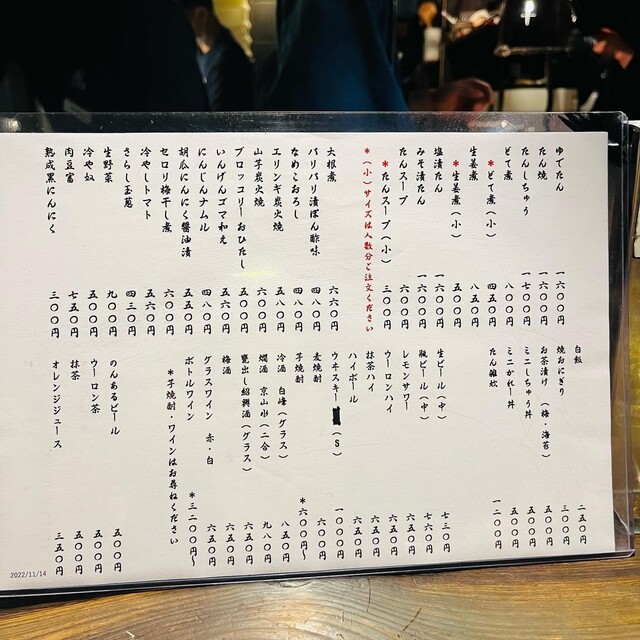 ゆでたん 一六〇〇円
たん焼 一六〇〇円
たんしちゅう 一七〇〇円
どて煮 八〇〇円
*どて煮(小) 四五〇円
生姜煮 八五〇円
*生姜煮(小) 五〇〇円
塩漬たん 一六〇〇円
みそ漬たん 一六〇〇円
たんスープ 六〇〇円
*たんスープ(小) 三〇〇円
*(小)サイズは人数分ご注文ください
大根煮 六六〇円
パリパリ漬ぽん酢味 四八〇円
なめこおろし 四八〇円
エリンギ炭火焼 五八〇円
山芋炭火焼 六〇〇円
ブロッコリーおひたし 五五〇円
いんげんゴマ和え 五六〇円
にんじんナムル 四八〇円
胡瓜にんにく醤油漬 五五〇円
セロリ梅干し煮 六〇〇円
冷やしトマト 五六〇円
さらし玉葱 四三〇円
生野菜 九〇〇円
冷や奴 五〇〇円
肉豆富 七五〇円
熟成黒にんにく 三〇〇円
白飯 二五〇円
焼おにぎり 三〇〇円
お茶漬け(梅・海苔) 五〇〇円
ミニしちゅう丼 五〇〇円
ミニかれー丼 五〇〇円
たん雑炊 一二〇〇円
生ビール(中) 七三〇円
瓶ビール(中) 七六〇円
レモンサワー 六五〇円
ウーロンハイ 六五〇円
抹茶ハイ 六五〇円
ハイボール 六五〇円
ウヰスキー(S) 一〇〇〇円
麦焼酎 六〇〇円
芋焼酎 *六〇〇円〜
冷酒 白峰(グラス) 八五〇円
燗酒 京山水(二合) 九八〇円
甕出し紹興酒(グラス) 六五〇円
梅酒 六五〇円
グラスワイン 赤・白 六五〇円
ボトルワイン *三二〇〇円〜
*芋焼酎・ワインはお尋ねください
のんあるビール 五〇〇円
ウーロン茶 五〇〇円
抹茶 五〇〇円
オレンジジュース 三五〇円
2022/11/14